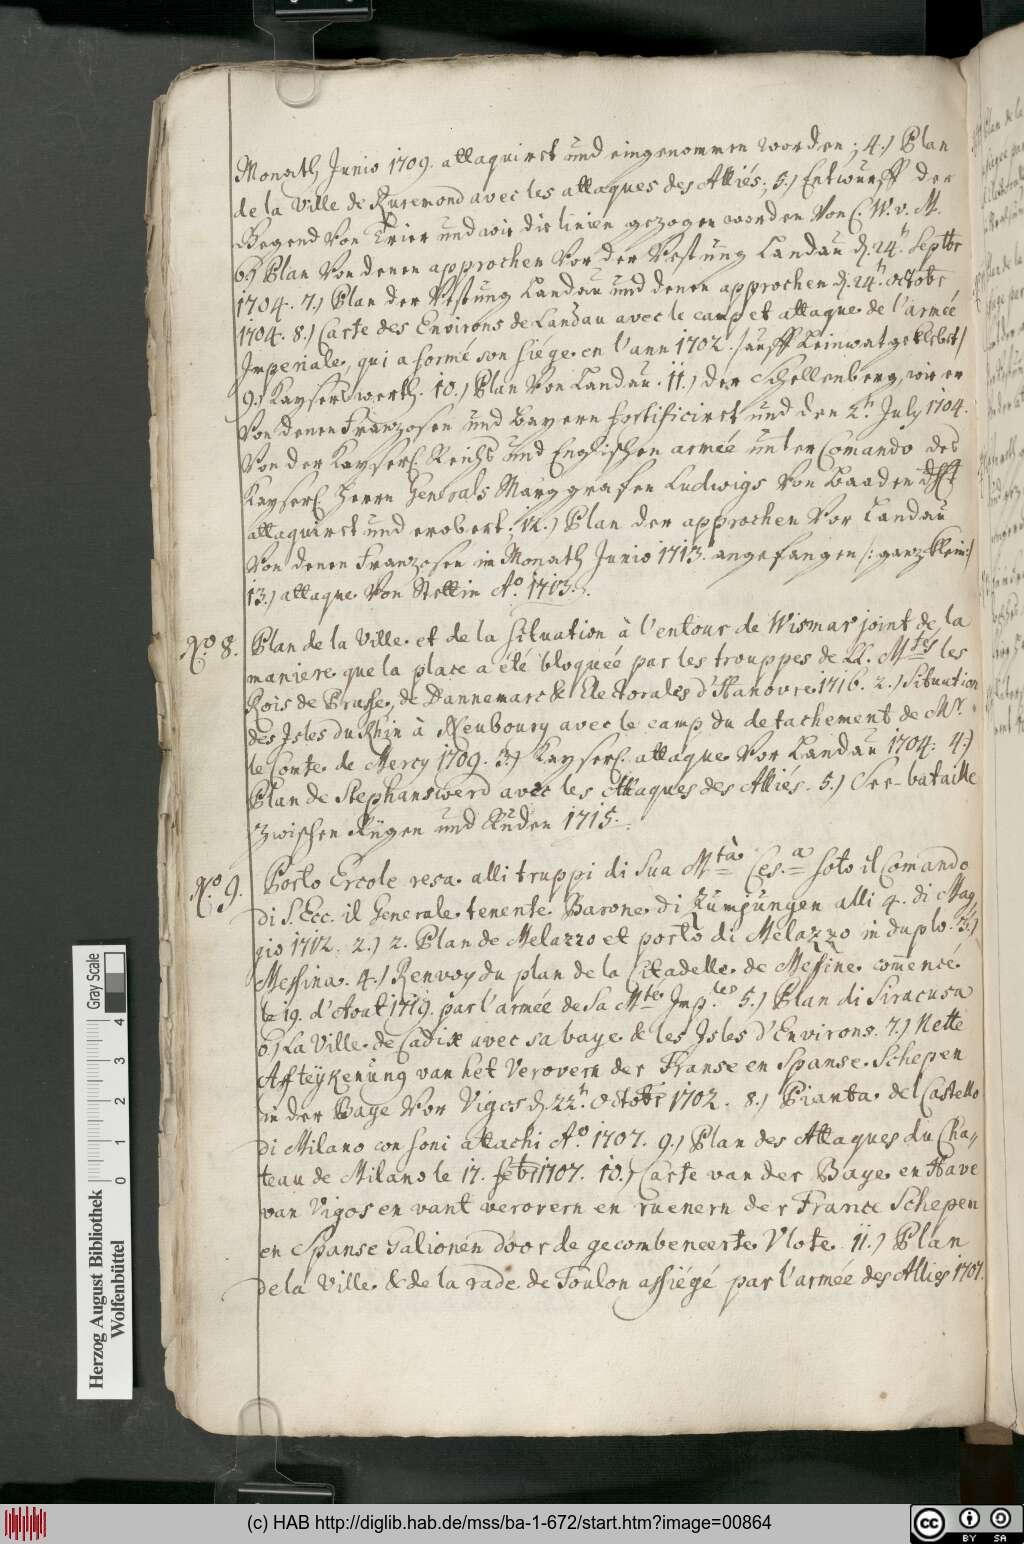 Monath Junio 1709. attaquiret und eingenommen worden; 4.) Plan
de la Ville de Ruremond avec les attaques des Alliés; 5.) Entwurff der
Gegend von Trier und wie die linien gezogen worden von C. W. v. M.
6.) Plan von denen approchen vor der Vestung Landau d. 24.n Septbr
1704. 7.) Plan der Vestung Landau und denen approchen d. 24.n octobr
1704. 8.) Carte des Environs de Landau avec le camp et attaque de l'armée
Imperiale, qui a formé son siége en l'ann 1702. /auff Leinwat geklebet/
9.) Kayserswerth. 10.) Plan von Landau. 11.) der Schellenberg, wie er
von denen Franzosen und Bayern fortificiret und den 2.n July 1704.
von der Kayserl. Reichs und Englischen armée unter Comando des
Kayserl. Herrn Generals Marggrafen Ludwigs von Baaden
attaquiret und erobert; 12.) Plan der approchen vor Landau
von denen Franzosen im Monath Junio 1713. angefangen /: ganz klein:/
13.) attaque von Stettin Ao. 1713.
No. 8. Plan de la Ville et de la situation à l'entour de Wismar joint de la
maniere que la place a été bloquée par les trouppes de LL. Mtés les
Rois de Prusse, de Dannemarc & Electorales d'Hanovre 1716. 2.) Situation
des Isles du Rhin à Neubourg avec le camp du detachement de Mr.
le Comte de Mercy 1709. 3.) Kayserl. attaque vor Landau 1704. 4.)
Plan de Stephanswerd avec les Attaques des Alliés. 5.) See-bataille
zwischen Rügen und Ruden 1715.
No. 9. Porto Ercole resa alli truppi di Sua Mtà Ces.a soto il Comando
di S. Ecc. il Generale tenente Barone di Zumjungen alli 4. di Mag,,
gio 1712. 2.) 2. Plan de Melazzo et porto di Melazzo in duplo. 3.)
Messina. 4.) Renvoy du plan de la Citadelle de Messine comencé
le 19. d'Aout 1719. par l'armée de Sa Mté Imp.les 5.) Plan di Siracusa
6.) La Ville de Cadix avec sa baye & les Isles d'Environs. 7.) Nette
Afteÿkenüng van het Verovern der Franse en Spanse Schepen
in der Baye vor Vigos d. 22.n octobr 1702. 8.) Pianta del Castello
di Milano con soni attachi Ao. 1707. 9.) Plan des Attaques du Cha,,
teau de Milano le 17. febr 1707. 10.) Carte van der Baye en Have
van Vigos en vant verovern en ruenern der France Schepen
en Spanse Galionen door de gecombeneerte Vlote. 11.) Plan
de la Ville & de la rade de Toulon assiégé par l'armée des Allies 1707.
Herzog August Bibliothek
Wolfenbüttel
0 1 2 3 4
Gray Scale
(c) HAB http://diglib.hab.de/mss/ba-1-672/start.htm?image=00864
cc BY SA